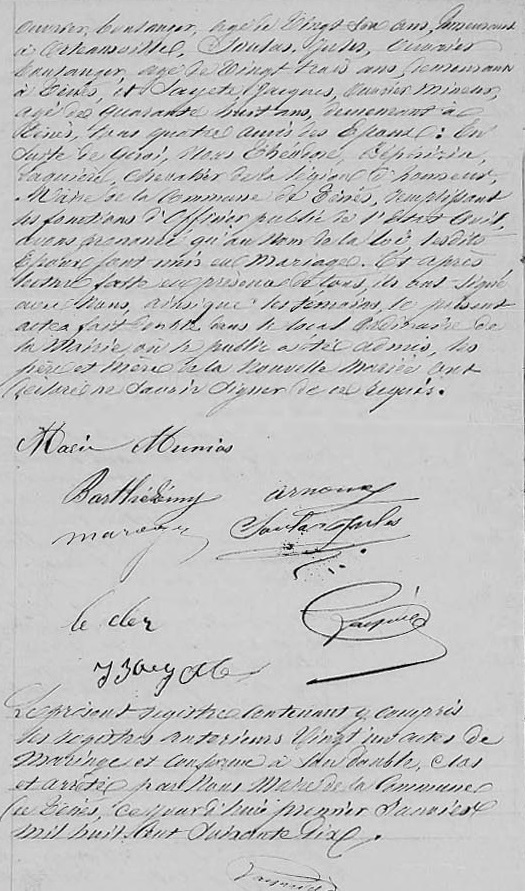 ouvrier boulanger, agé de Vingt ans, demeurant
à Orléansville, Soulas, Jules, Ouvrier
boulanger, agé de Vingt trois ans, demeurant
à Ténès, et Jacques, Ouvrier Mineur,
agé de quarante huit ans, demeurant à
Ténès, tous quatre amis des Epoux: En
suite de quoi, Nous Théodore,
Chevalier de la légion d'honneur
Maire de la Commune de Ténès, remplissant
les fonctions d'Officier public de l'Etat Civil,
avons prononcé qu'au Nom de la Loi, lesdits
Epoux sont unis en Mariage. Et après
lecture faite en présence de tous, ils ont signé
avec Nous, ainsi que les temoins, le présent
acte fait dans le local Ordinaire de
la Mairie, où le public a été admis, les
père et mère de la Nouvelle Mariée ont
déclaré ne Savoir Signer de ce requis.
Barthélémy
le cler
Le présent registre Contenant y compris
les registres anterieurs Vingt un actes de
Mariage et conforme à Son double, clos
et arrêté par Nous Maire de la Commune
de Ténès, ce jour d'hui premier Janvier
mil huit Cent Soixante Dix.